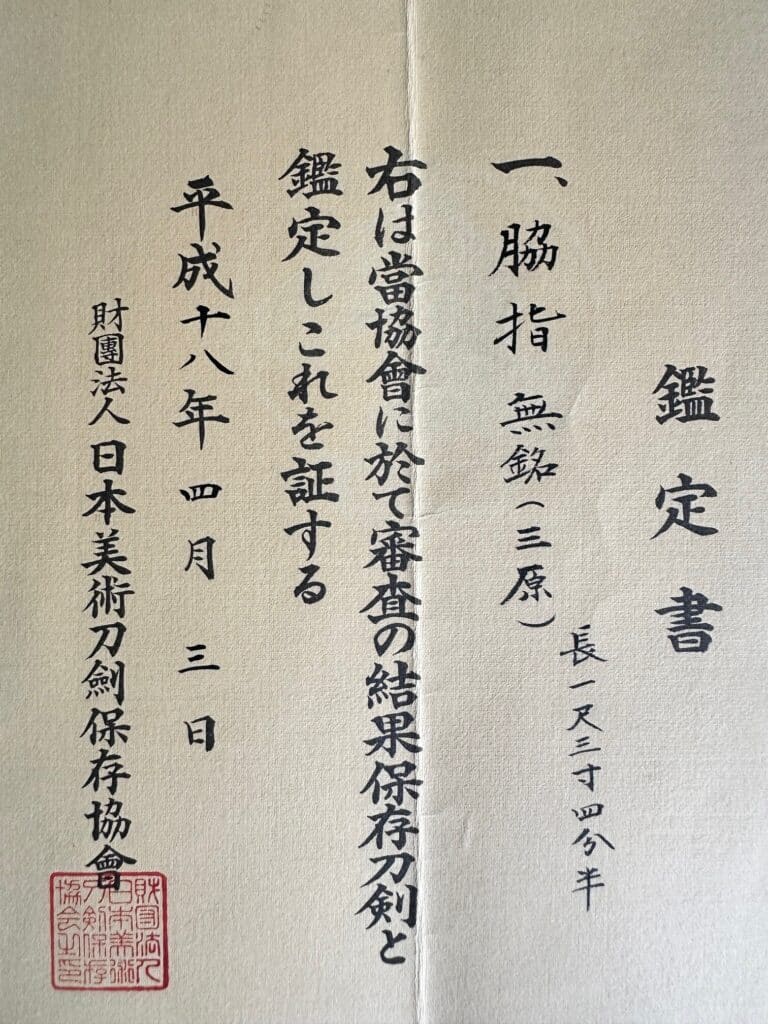 鑑定書
長一尺三寸四分半
一、脇指 無銘(三原)
右は當協會に於て審査の結果保存刀剣と
鑑定しこれを証する
平成十八年四月三日
財團法人日本美術刀劍保存協會
財団法人
日本美術
刀剣保存
協会之印